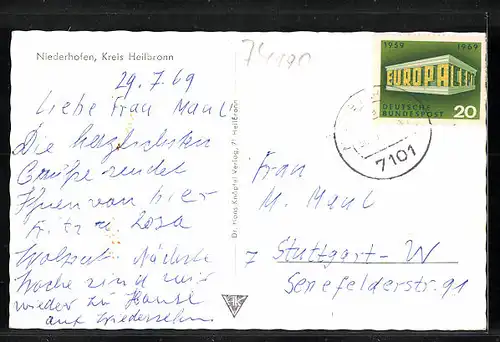 Niederhofen, Kreis Heilbronn
29.7.69
Liebe Frau Maul
Die herzlichsten
Grüße sendet
Ihnen von hier
Fritz u Rosa
Nächste
Woche sind wir
wieder zu Hause
auf Wiedersehn.
Dr. Hans Knöpfel Verlag, 71 Heilbronn
1959 1969
EUROPA CEPT
DEUTSCHE
BUNDESPOST 20
7101
Frau
M. Maul
7 Stuttgart-W
Senefelderstr. 91